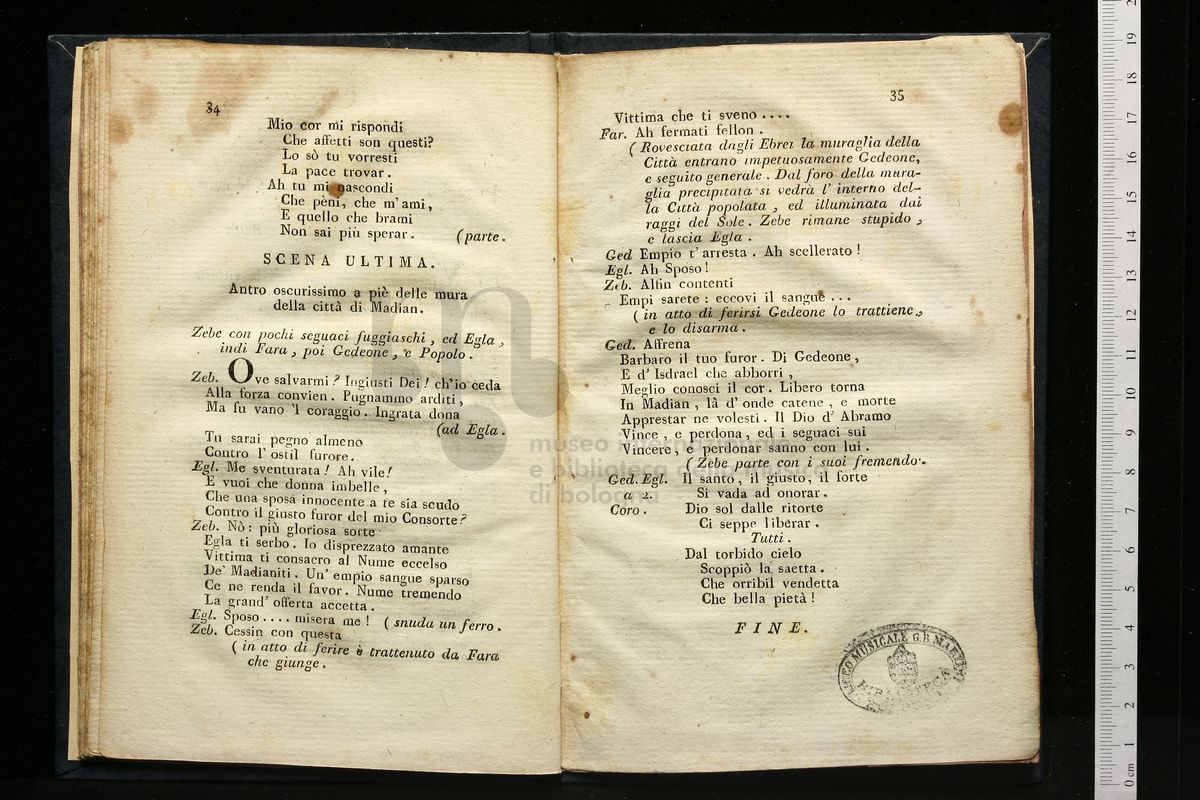 34
Mio cor mi rispondi
Che affetti son questi?
Lo sò tu vorresti
La pace trovar.
Ah tu mi nascondi
Che peni, che m'ami,
E quello che brami
Non sai più sperar. (parte.
SCENA ULTIMA.
Antro oscurissimo a piè delle mura
della città di Madian.
Zebe con pochi seguaci fuggiaschi, ed Egla,
indi Fara, poi Gedeone, e Popolo.
Zeb. Ove salvarmi? Ingiusti Dei! ch'io ceda
Alla forza convien. Pugnammo arditi,
Ma fu vano 'l coraggio. Ingrata dona
(ad Egla.
Tu sarai pegno almeno
Contro l'ostil furore.
Egl. Me sventurata! Ah vile!
E vuoi che donna imbelle,
Che una sposa innocente a te sia scudo
Contro il giusto furor del mio Consorte?
Zeb. Nò: più gloriosa sorte
Egla ti serbo. Io disprezzato amante
Vittima ti consacro al Nume eccelso
De' Madianiti. Un' empio sangue sparso
Ce ne renda il favor. Nume tremendo
La grand' offerta accetta.
Egl. Sposo.... misera me! (snuda un ferro.
Zeb. Cessin con questa
(in atto di ferire è trattenuto da Fara
che giunge.
35
Vittima che ti sveno ....
Far. Ah fermati fellon.
(Rovesciata dagli Ebrei la muraglia della
Città entrano impetuosamente Gedeone,
e seguito generale. Dal foro della mura-
glia precipitata si vedrà l'interno del-
la Città popolata, ed illuminata dai
raggi del Sole. Zebe rimane stupido,
e lascia Egla.
Ged Empio t'arresta. Ah scellerato!
Egl. Ah Sposo!
Zeb. Alfin contenti
Empi sarete: eccovi il sangue ...
(in atto di ferirsi Gedeone lo trattiene,
e lo disarma.
Ged. Affrena
Barbaro il tuo furor. Di Gedeone,
E d'Isdrael che abborri,
Meglio conosci il cor. Libero torna
In Madian, là d'onde catene, e morte
Apprestar ne volesti. Il Dio d'Abramo
Vince, e perdona, ed i seguaci sui
Vincere, e perdonar sanno con lui.
(Zebe parte con i suoi fremendo.
Ged. Egl. Il santo, il giusto, il forte
a 2. Si vada ad onorar.
Coro. Dio sol dalle ritorte
Ci seppe liberar.
Tutti.
Dal torbido cielo
Scoppiò la saetta.
Che orribil vendetta
Che bella pietà!
FINE.
LICEO MUSICALE G.B. MARTINI
BIBLIOTECA
museo internazionale
e biblioteca della musica
di bologna
0 cm 1 2 3 4 5 6 7 8 9 10 11 12 13 14 15 16 17 18 19 2